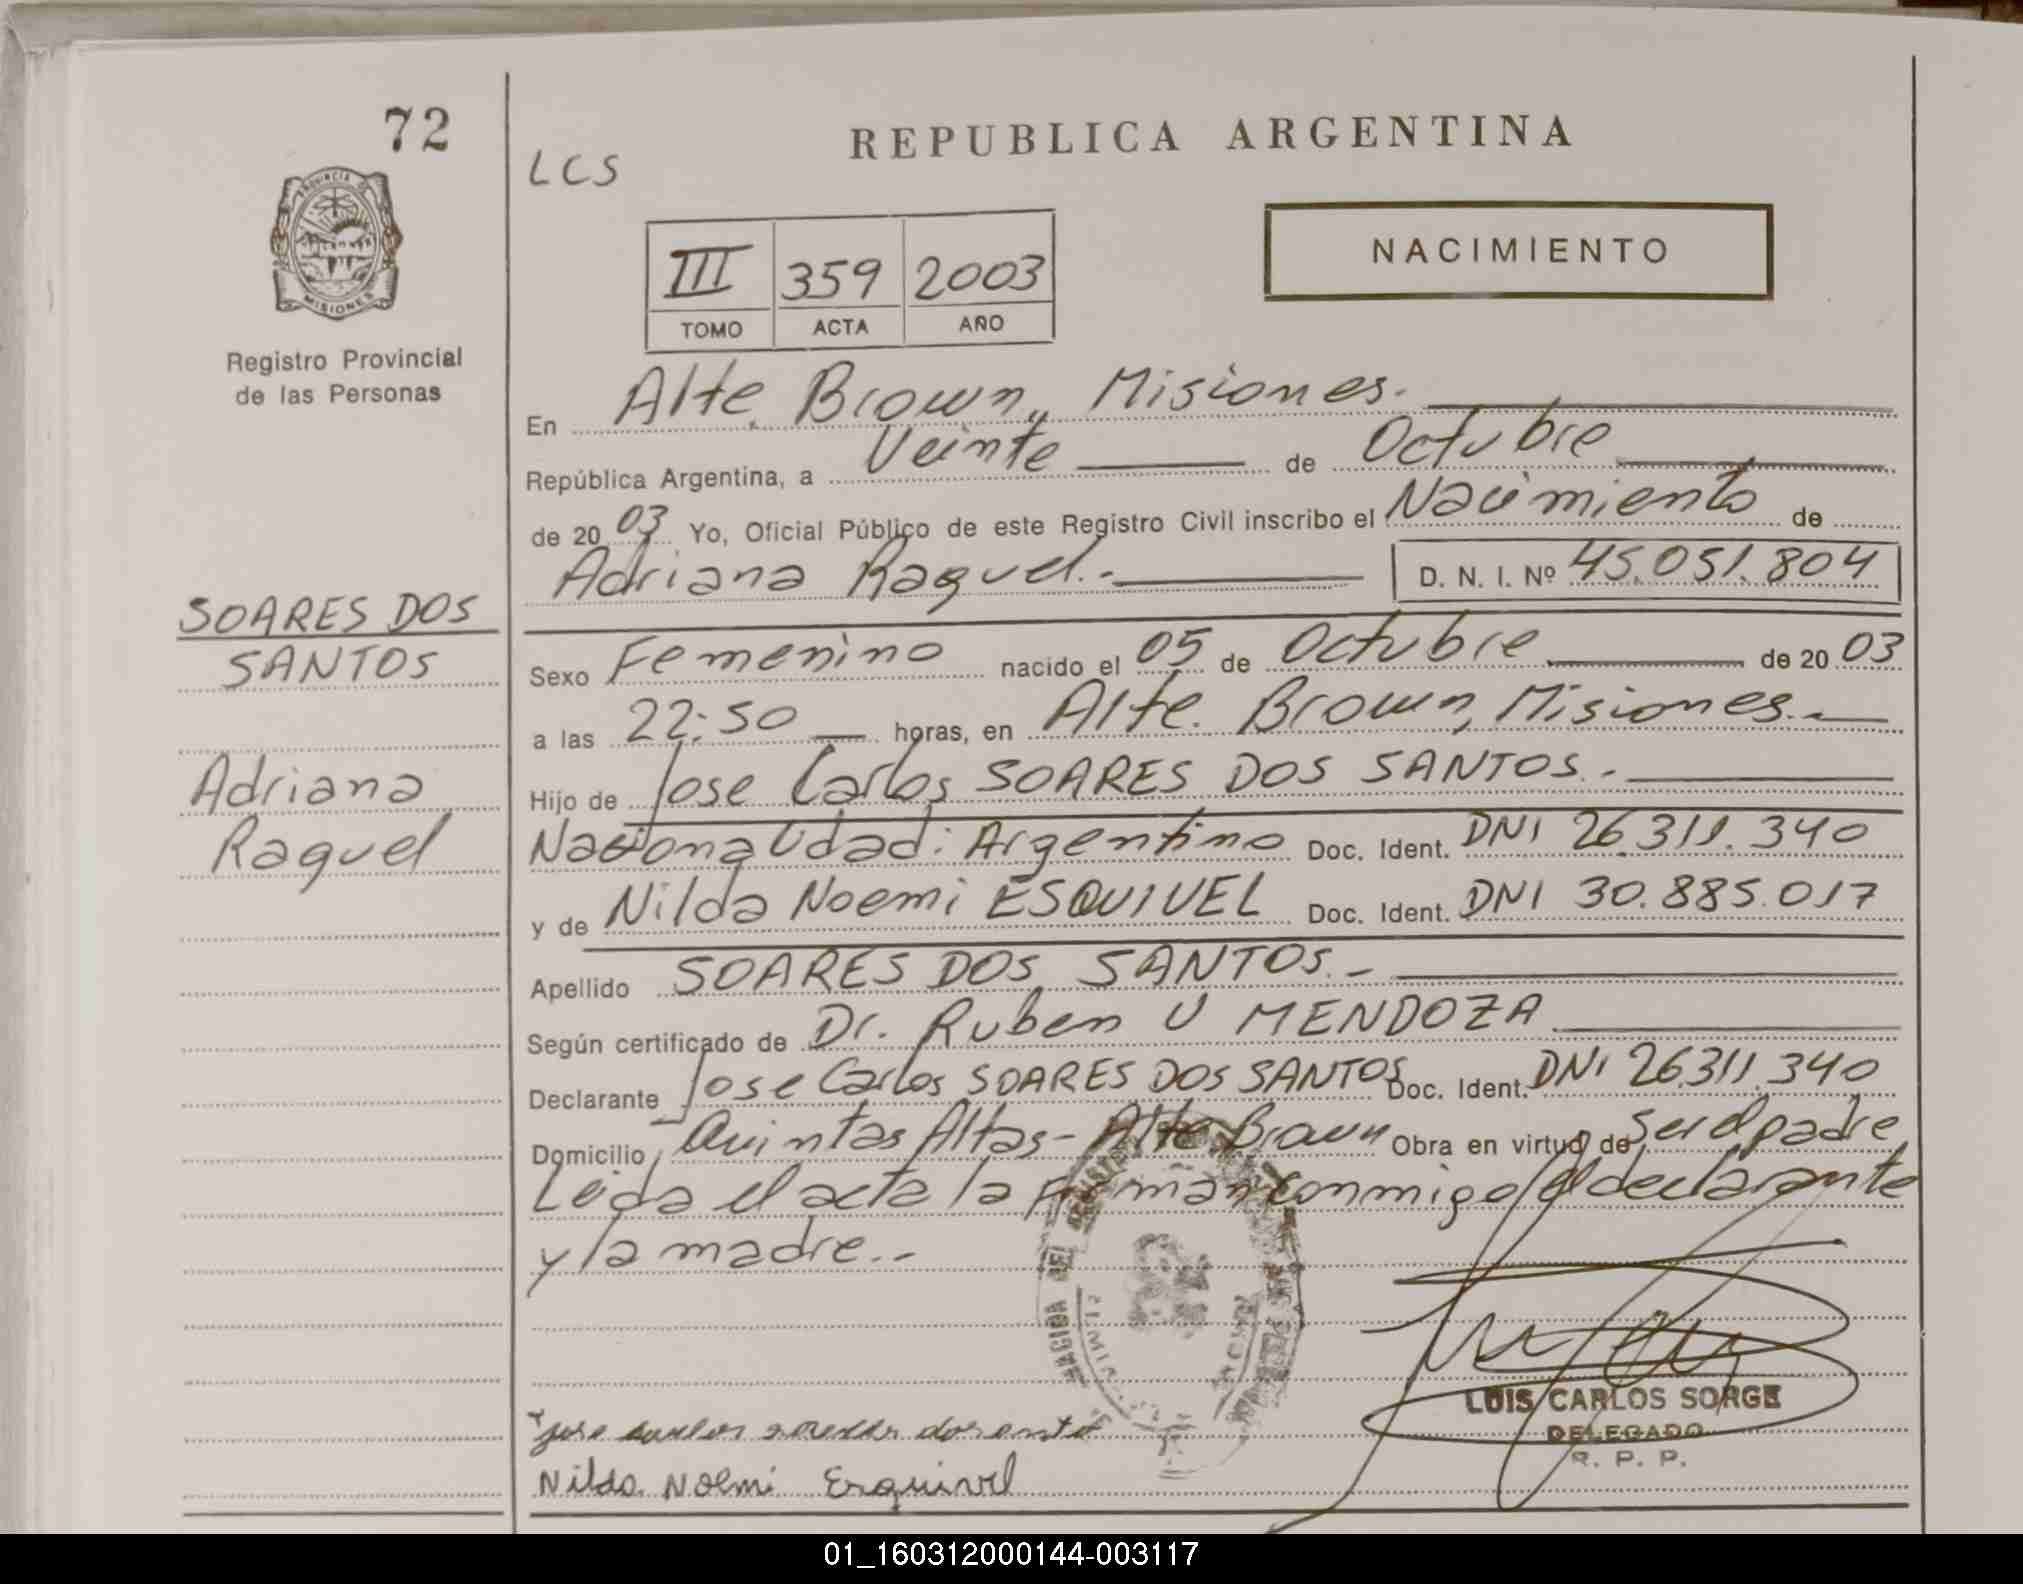 72
PROVINCIA DE
MISIONES
Registro Provincial
de las Personas
SOARES DOS
SANTOS
Adriana
Raquel
LCS
REPUBLICA ARGENTINA
NACIMIENTO
III 359 2003
TOMO ACTA AÑO
En Alte. Brown, Misiones.
República Argentina, a Veinte de Octubre
de 2003 Yo, Oficial Público de este Registro Civil inscribo el Nacimiento de
Adriana Raquel.- D. N. I. Nº 45.051.804
Sexo Femenino nacido el 05 de Octubre de 2003
a las 22:50 horas, en Alte. Brown, Misiones.-
Hijo de Jose Carlos SOARES DOS SANTOS.-
Nacionalidad: Argentino Doc. Ident. DNI 26.311.340
y de Nilda Noemi ESQUIVEL Doc. Ident. DNI 30.885.017
Apellido SOARES DOS SANTOS.-
Según certificado de Dr. Ruben U MENDOZA
Declarante Jose Carlos SOARES DOS SANTOS Doc. Ident. DNI 26.311.340
Domicilio Quintas Altas- Alte Brown Obra en virtud de Ser el padre
Leida el acta la firman conmigo el declarante
y la madre.-
LUIS CARLOS SORGE
DELEGADO
R. P. P.
jose carlos soares dos santos
Nilda Noemi Esquivel
01_160312000144-003117